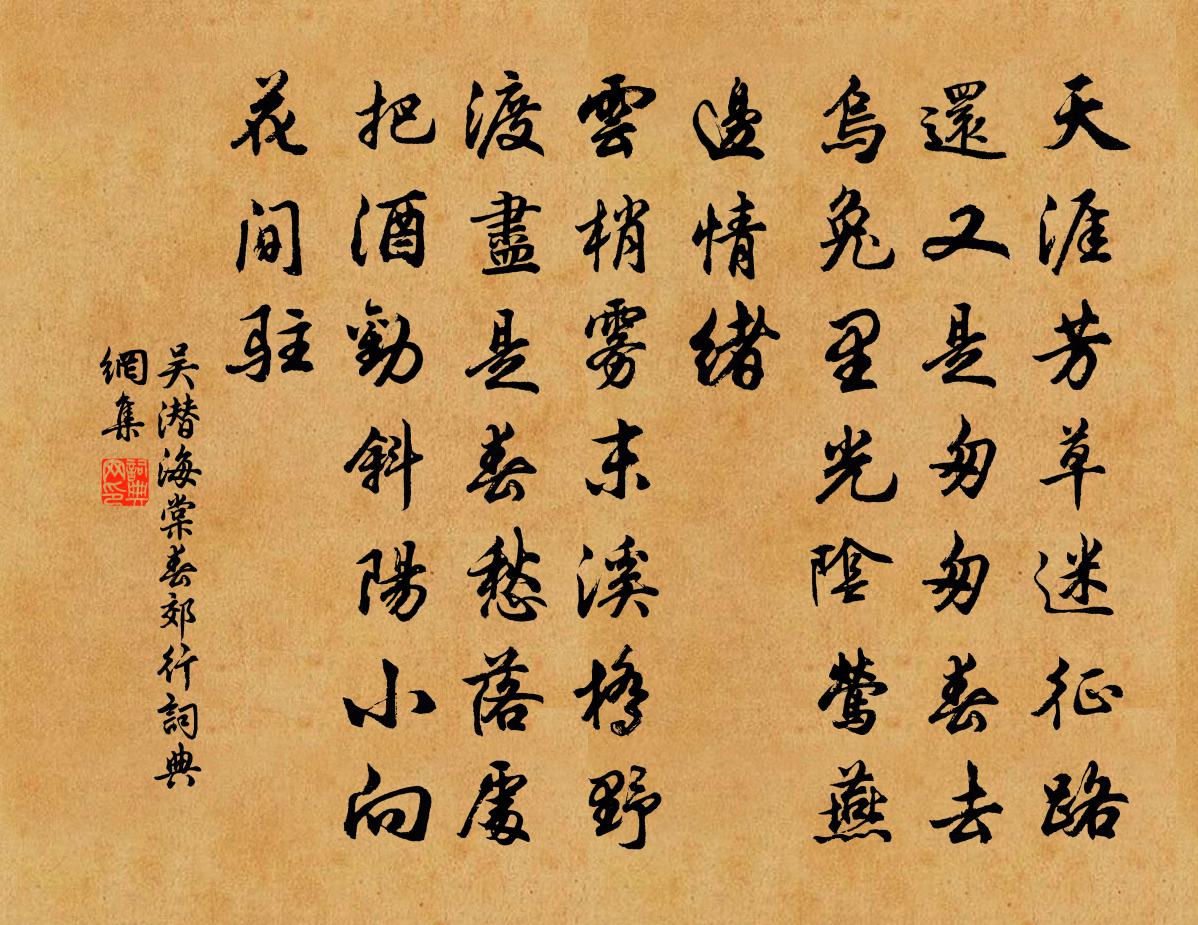 天涯芳草迷征路
還又是匆匆春去
烏兔里光陰鶯燕
邊情緒
雲梢霧末溪橋野
渡盡是春愁落處
把酒勸斜陽小向
花間駐
吴潜海棠春郊行詞典
網集
詞典
网印